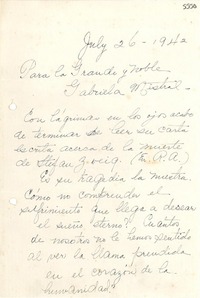 5550
July 26-1942
Para la Grande y Noble
Gabriela Mistral.
Con lágrimas en los ojos acabo
de terminar de leer su carta
escrita acerca de la muerte
de Stefan Zweig. (E. R.A.)
Es su tragedia la nuestra.
Cómo no comprender el
sufrimiento que llega a desear
el sueño eterno? Cuantos
de nosotros no le hemos sentido
al ver la llama prendida
en el corazón de la
humanidad?